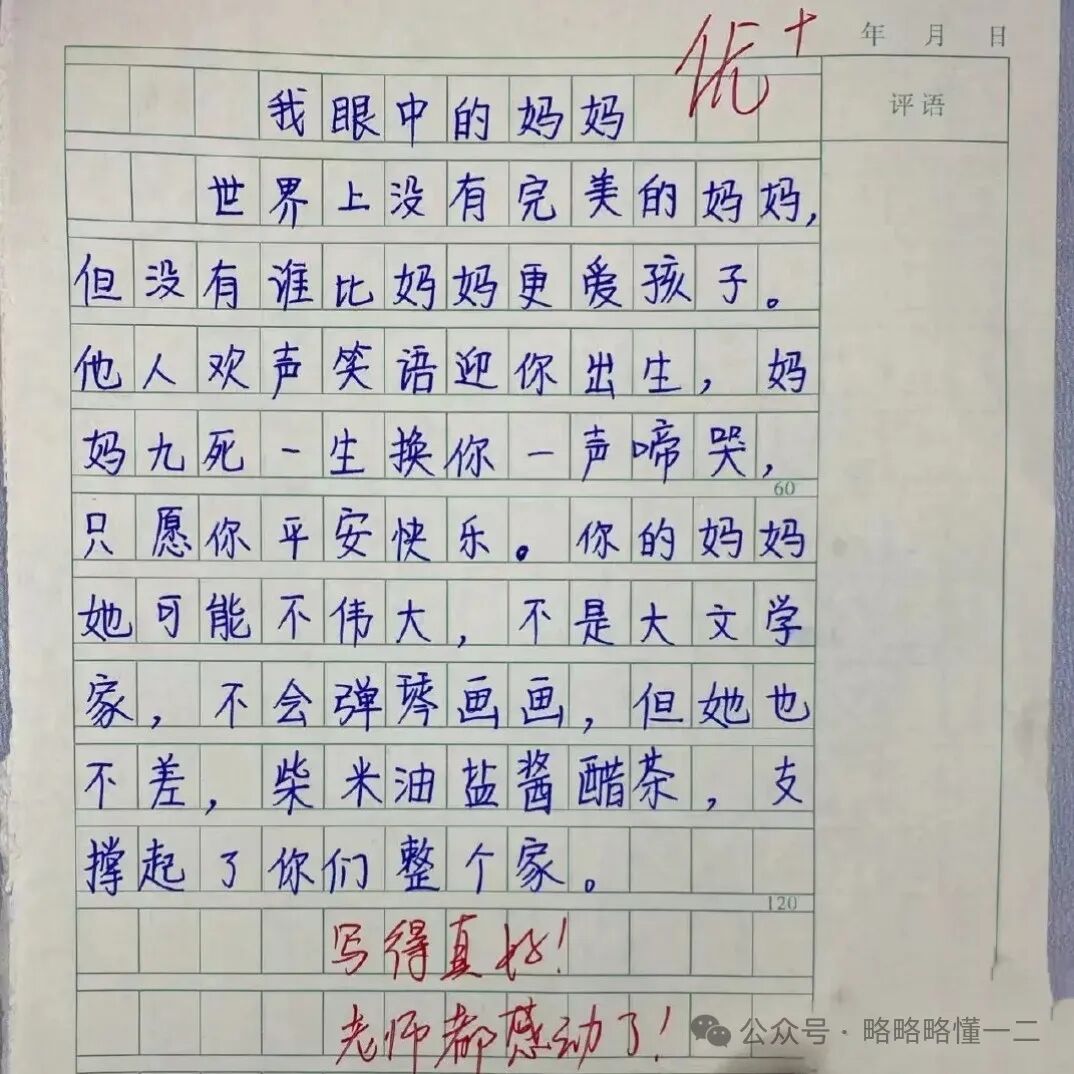 优+
年 月 日
评语
我眼中的妈妈
世界上没有完美的妈妈,
但没有谁比妈妈更爱孩子。
他人欢声笑语迎你出生,妈
妈九死一生换你一声啼哭,
60
只愿你平安快乐。你的妈妈
她可能不伟大,不是大文学
家,不会弹琴画画,但她也
不差,柴米油盐酱醋茶,支
撑起了你们整个家。
120
写得真好!
老师都感动了!
公众号·略略略懂一二